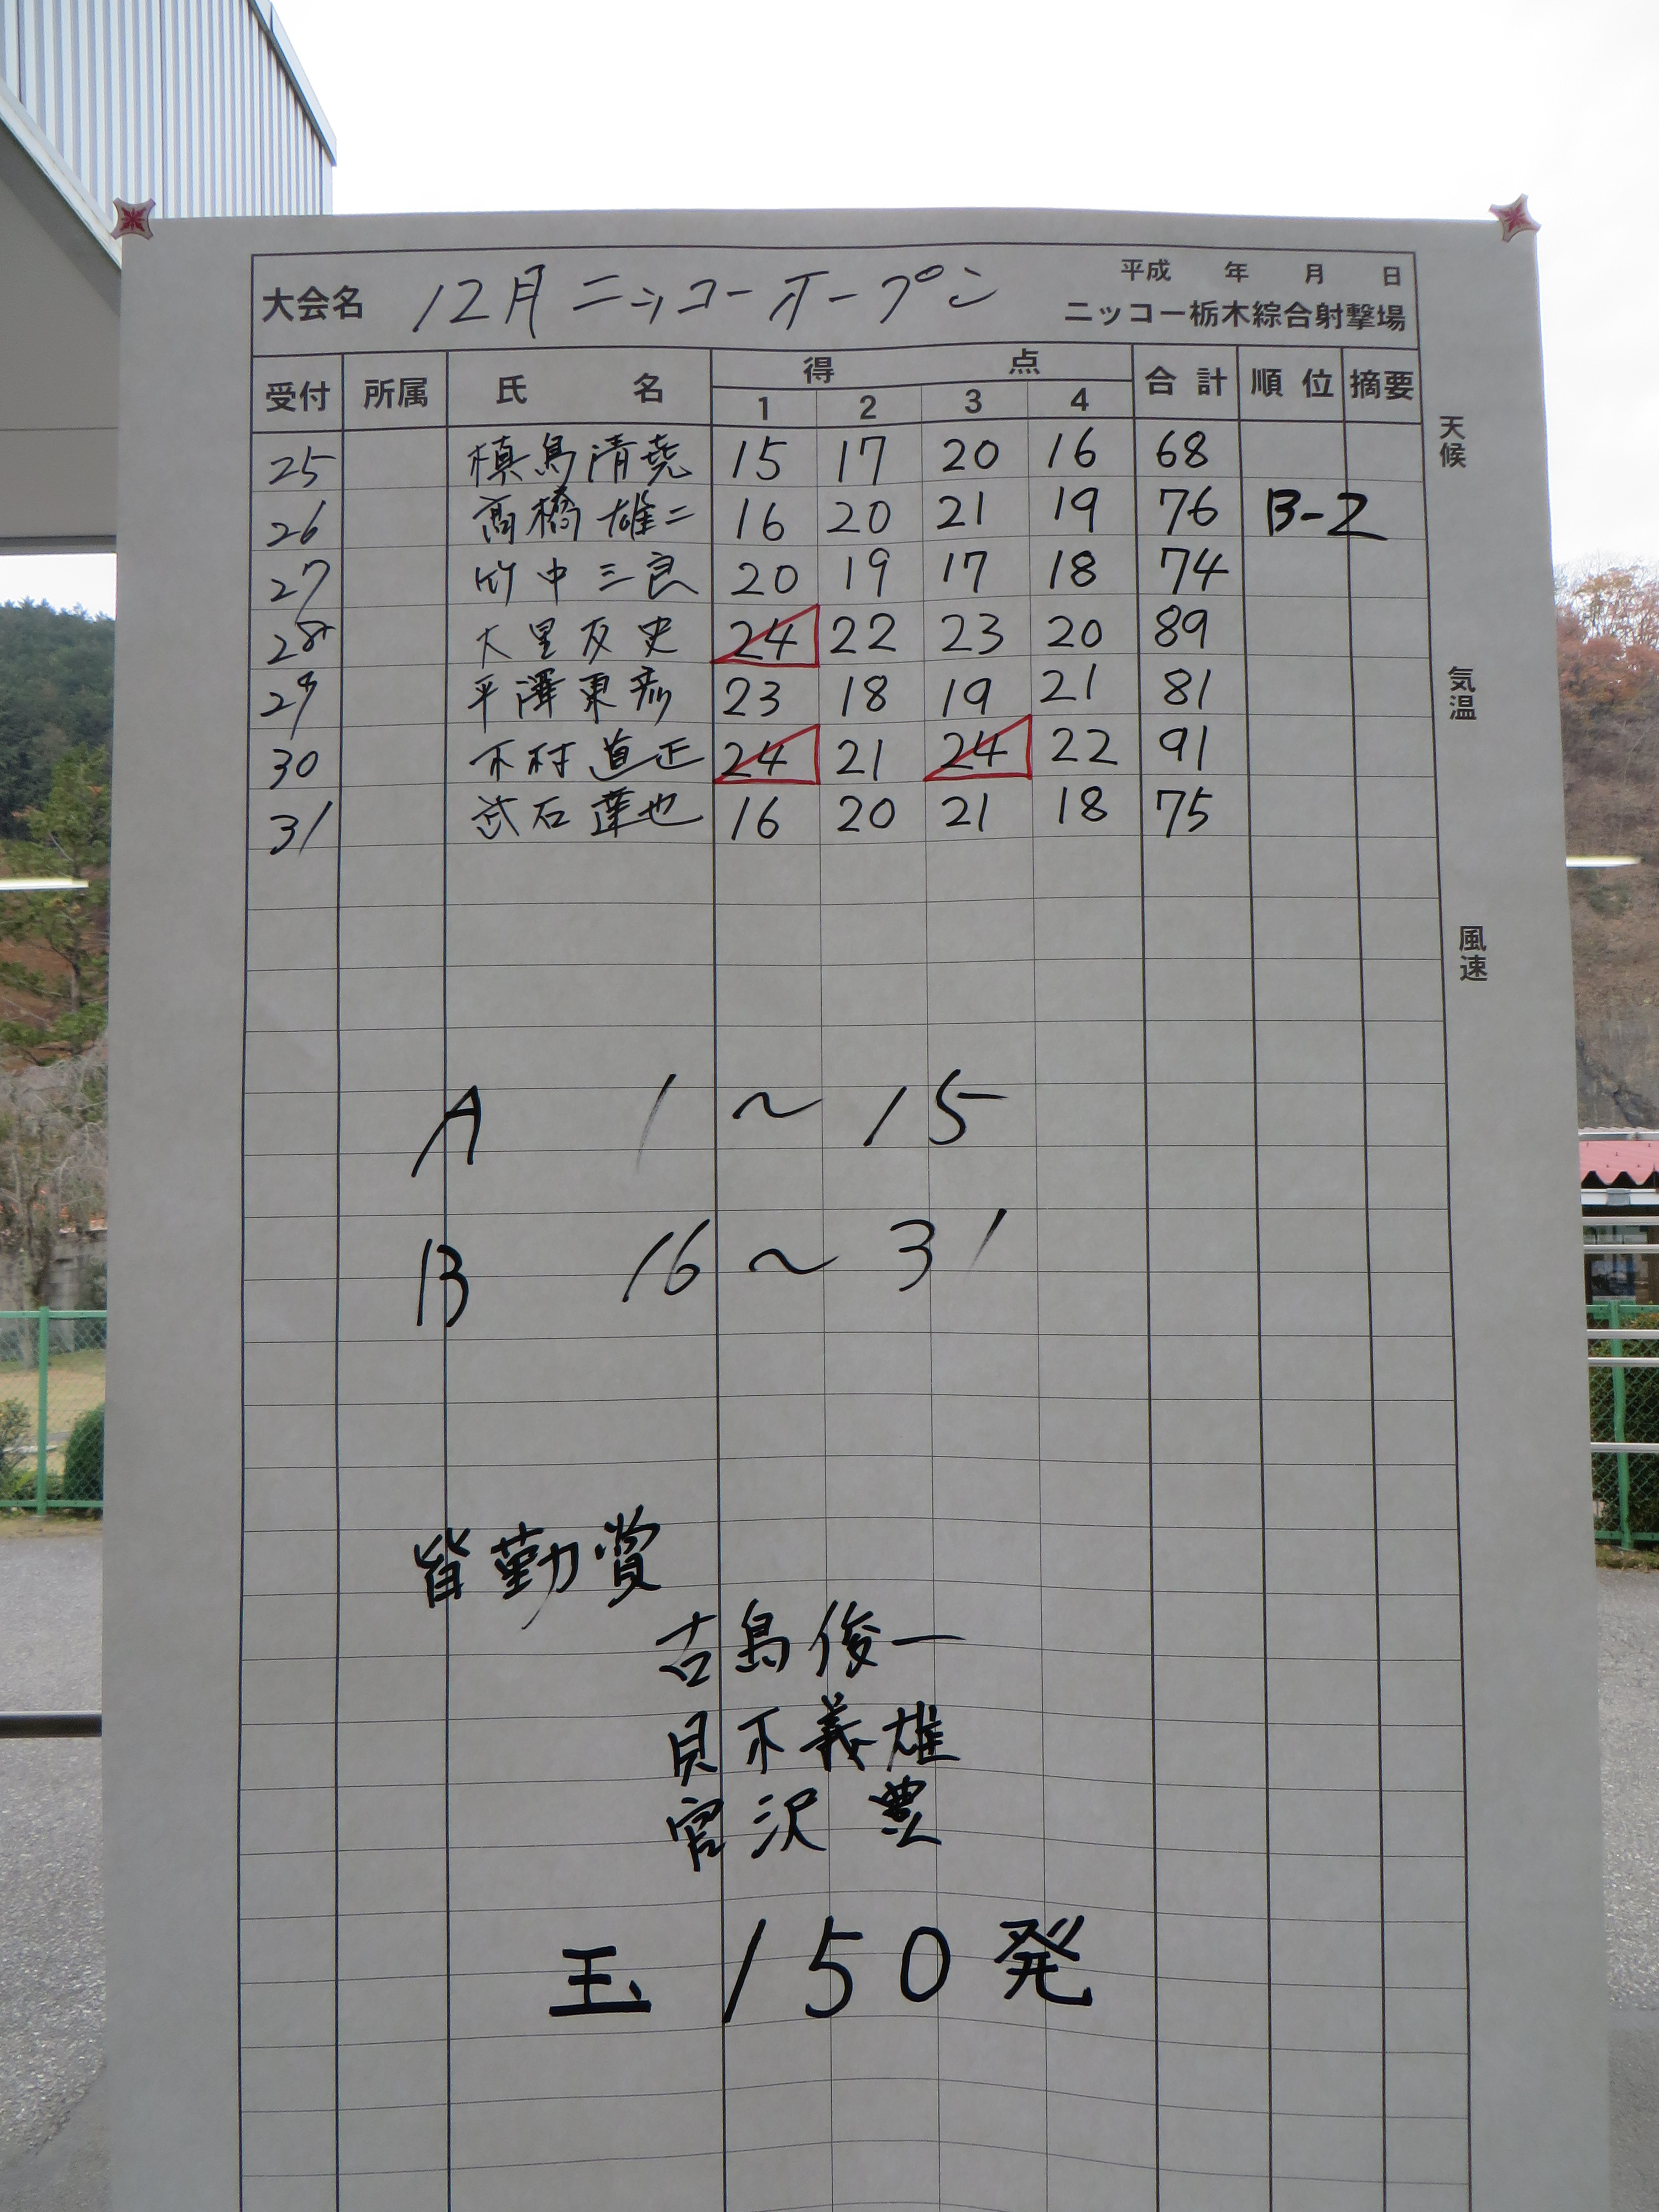 平成 年 月 日
大会名 12月ニッコーオープン
ニッコー栃木綜合射撃場
受付 所属 氏名 得点 合計 順位 摘要
1 2 3 4
25 槙島清堯 15 17 20 16 68
26 髙橋雄二 16 20 21 19 76 B-2
27 竹中三良 20 19 17 18 74
28 大里友史 24 22 23 20 89
29 平澤東彦 23 18 19 21 81
30 木村道正 24 21 24 22 91
31 武石達也 16 20 21 18 75
天候
気温
風速
A 1～15
B 16～31
皆勤賞
古島俊一
貝木義雄
宮沢豊
玉150発